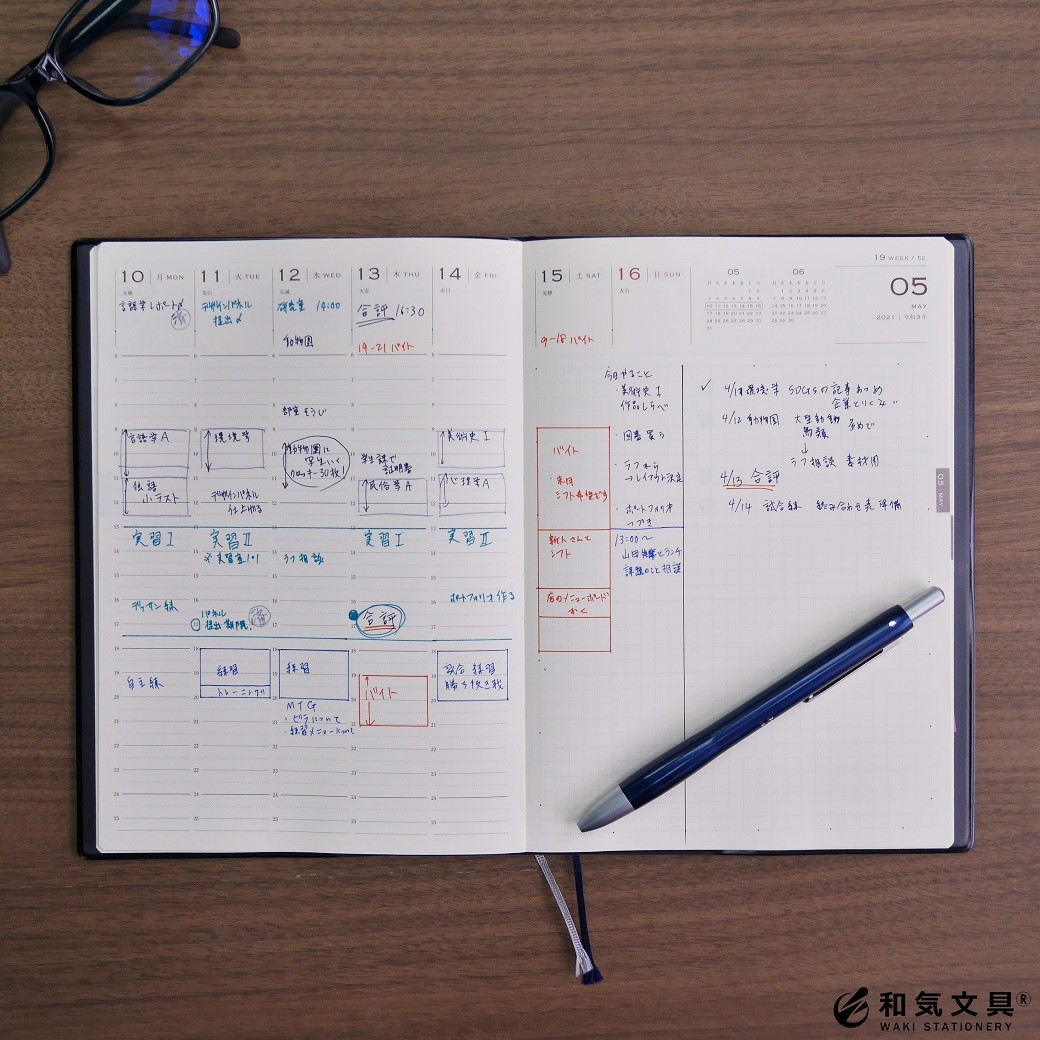 10 月 MON
先勝
11 火 TUE
友引
12 水 WED
先負
13 木 THU
大安
14 金 FRI
赤口
15 土 SAT
先勝
16 日 SUN
友引
05
06
19 WEEK / 52
05
MAY
2021 | 令和3年
言語学レポート〆
済
デザインパネル
提出〆
研究室 14:00
動物園
合評 16:30
19-21 バイト
9-18 バイト
部室そうじ
言語学A
伝語
小テスト
環境学
デザインパネル
仕上げる
動物園に
写生いく
クロッキー30枚!
学生課で
証明書
民俗学A
美術史I
心理学A
実習I
実習II
※実習室101
ラフ相談
実習I
実習II
デッサン線
パネル
提出期限.
済
合評
ポートフォリオ作る
自主練
練習
トレーニング
練習
MTG
・ビラについて
・練習メニューについて
バイト
試合練習
バイト
・来月
シフト希望出す
新人さんと
シフト
店のメニューボード
かく
今日やること
・美術史I
作品しらべ
・図書買う
・ラフから
→レイアウト決定
・ポートフォリオ
つづき
13:00〜
山田先輩とランチ
課題のこと相談
✓ 4/11 環境学 SDGsの記事あつめ
企業とりくみ
4/12 動物園 大型動物
馬類
↓
ラフ相談 素材用
4/13 合評
4/14 試合練 組み合わせ表 準備
05 MAY
和気文具®
WAKI STATIONERY